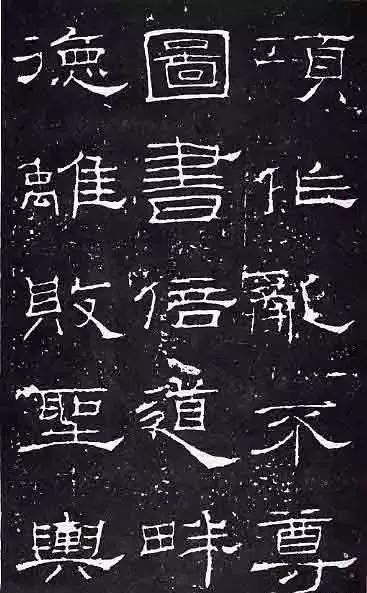 項作亂不尊
圖書倍道畔
德離敗聖輿